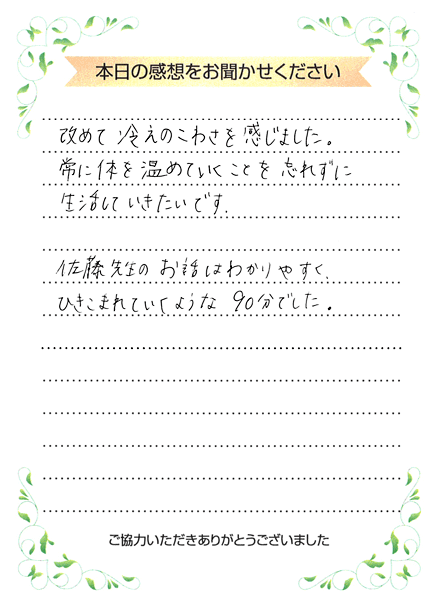 本日の感想をお聞かせください
改めて冷えのこわさを感じました。
常に体を温めていくことを忘れずに
生活していきたいです。
佐藤先生のお話はわかりやすく、
ひきこまれていくような90分でした。
ご協力いただきありがとうございました